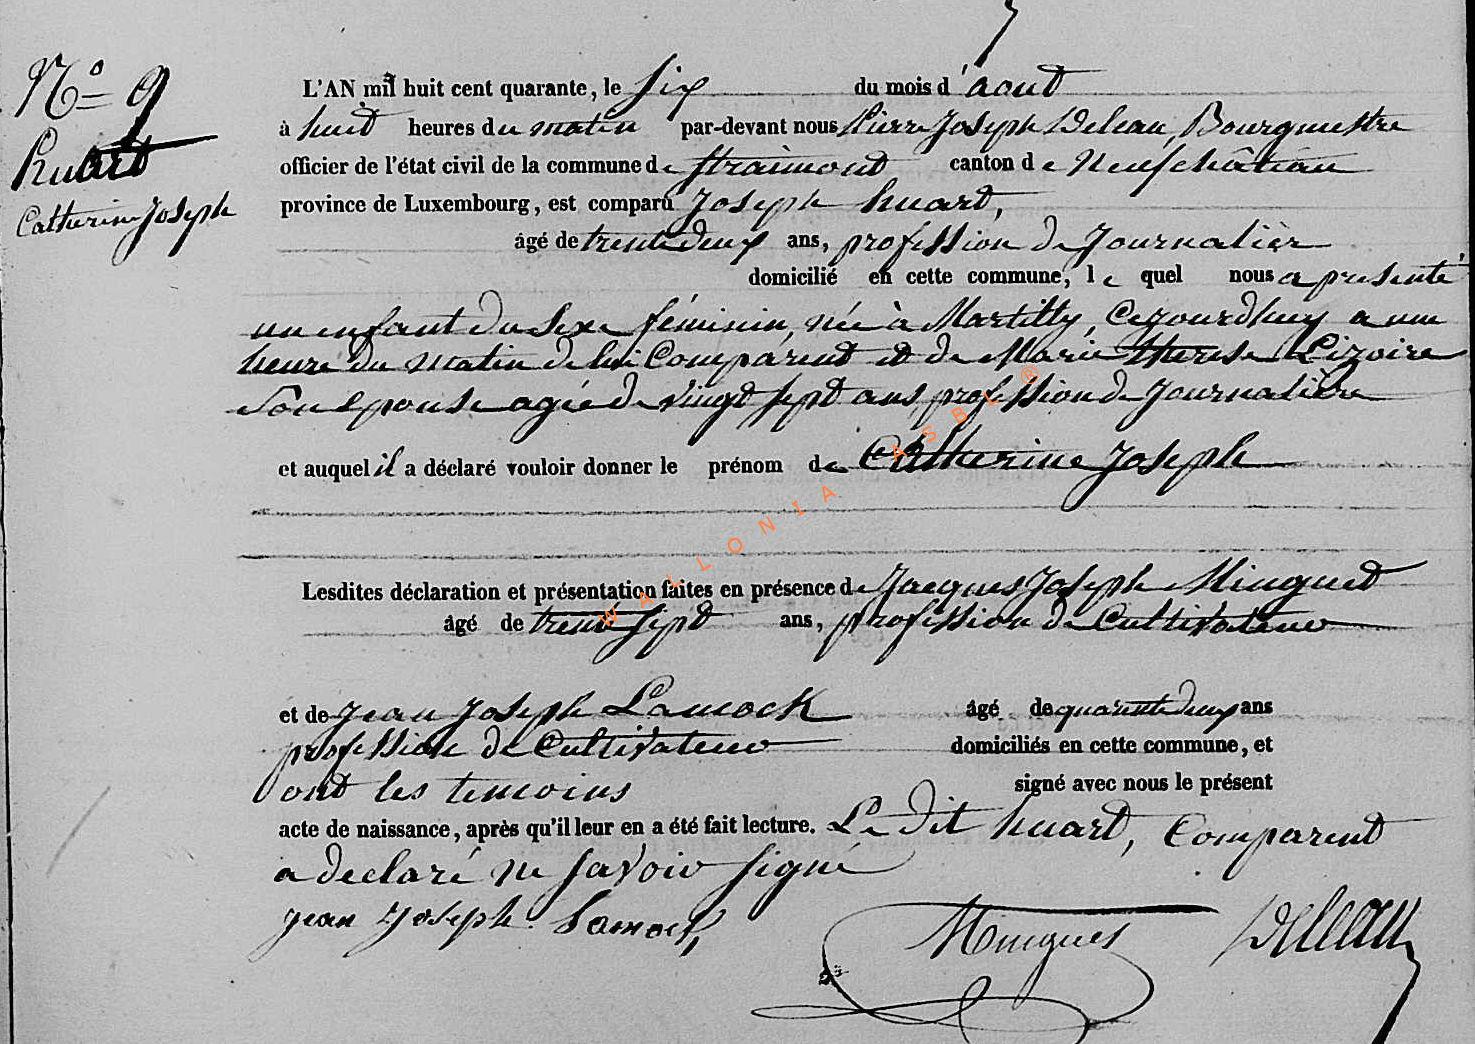 N° 9
Huart
Catherine Joseph
L'AN mil huit cent quarante, le six du mois d'aout
à huit heures du matin par-devant nous Pierre Joseph Deleau, Bourgmestre
officier de l'état civil de la commune de Straimont canton de Neufchâteau
province de Luxembourg, est comparu Joseph huart,
âgé de trente deux ans, profession de Journalièr
domicilié en cette commune, le quel nous a presenté
un enfant du Sexe féminin, née à Martilly, Cejourdhuy a une
heure du matin de lui Comparent et de Marie therese Lizoire
Son Epouse agée de vingt sept ans profession de Journalière
et auquel il a déclaré vouloir donner le prénom de Catherine Joseph
Lesdites déclaration et présentation faites en présence de Jacques Joseph Minguet
âgé de trente sept ans, profession de Cultivateur
et de Jean Joseph Lamock âgé de quarente deux ans
profession de Cultivateur domiciliés en cette commune, et
ont les temoins signé avec nous le présent
acte de naissance, après qu'il leur en a été fait lecture. Le dit huart, Comparent
a declaré ne savoir signé
Jean Joseph Lamock Minguet Deleau
WALLONIA ASBL ®